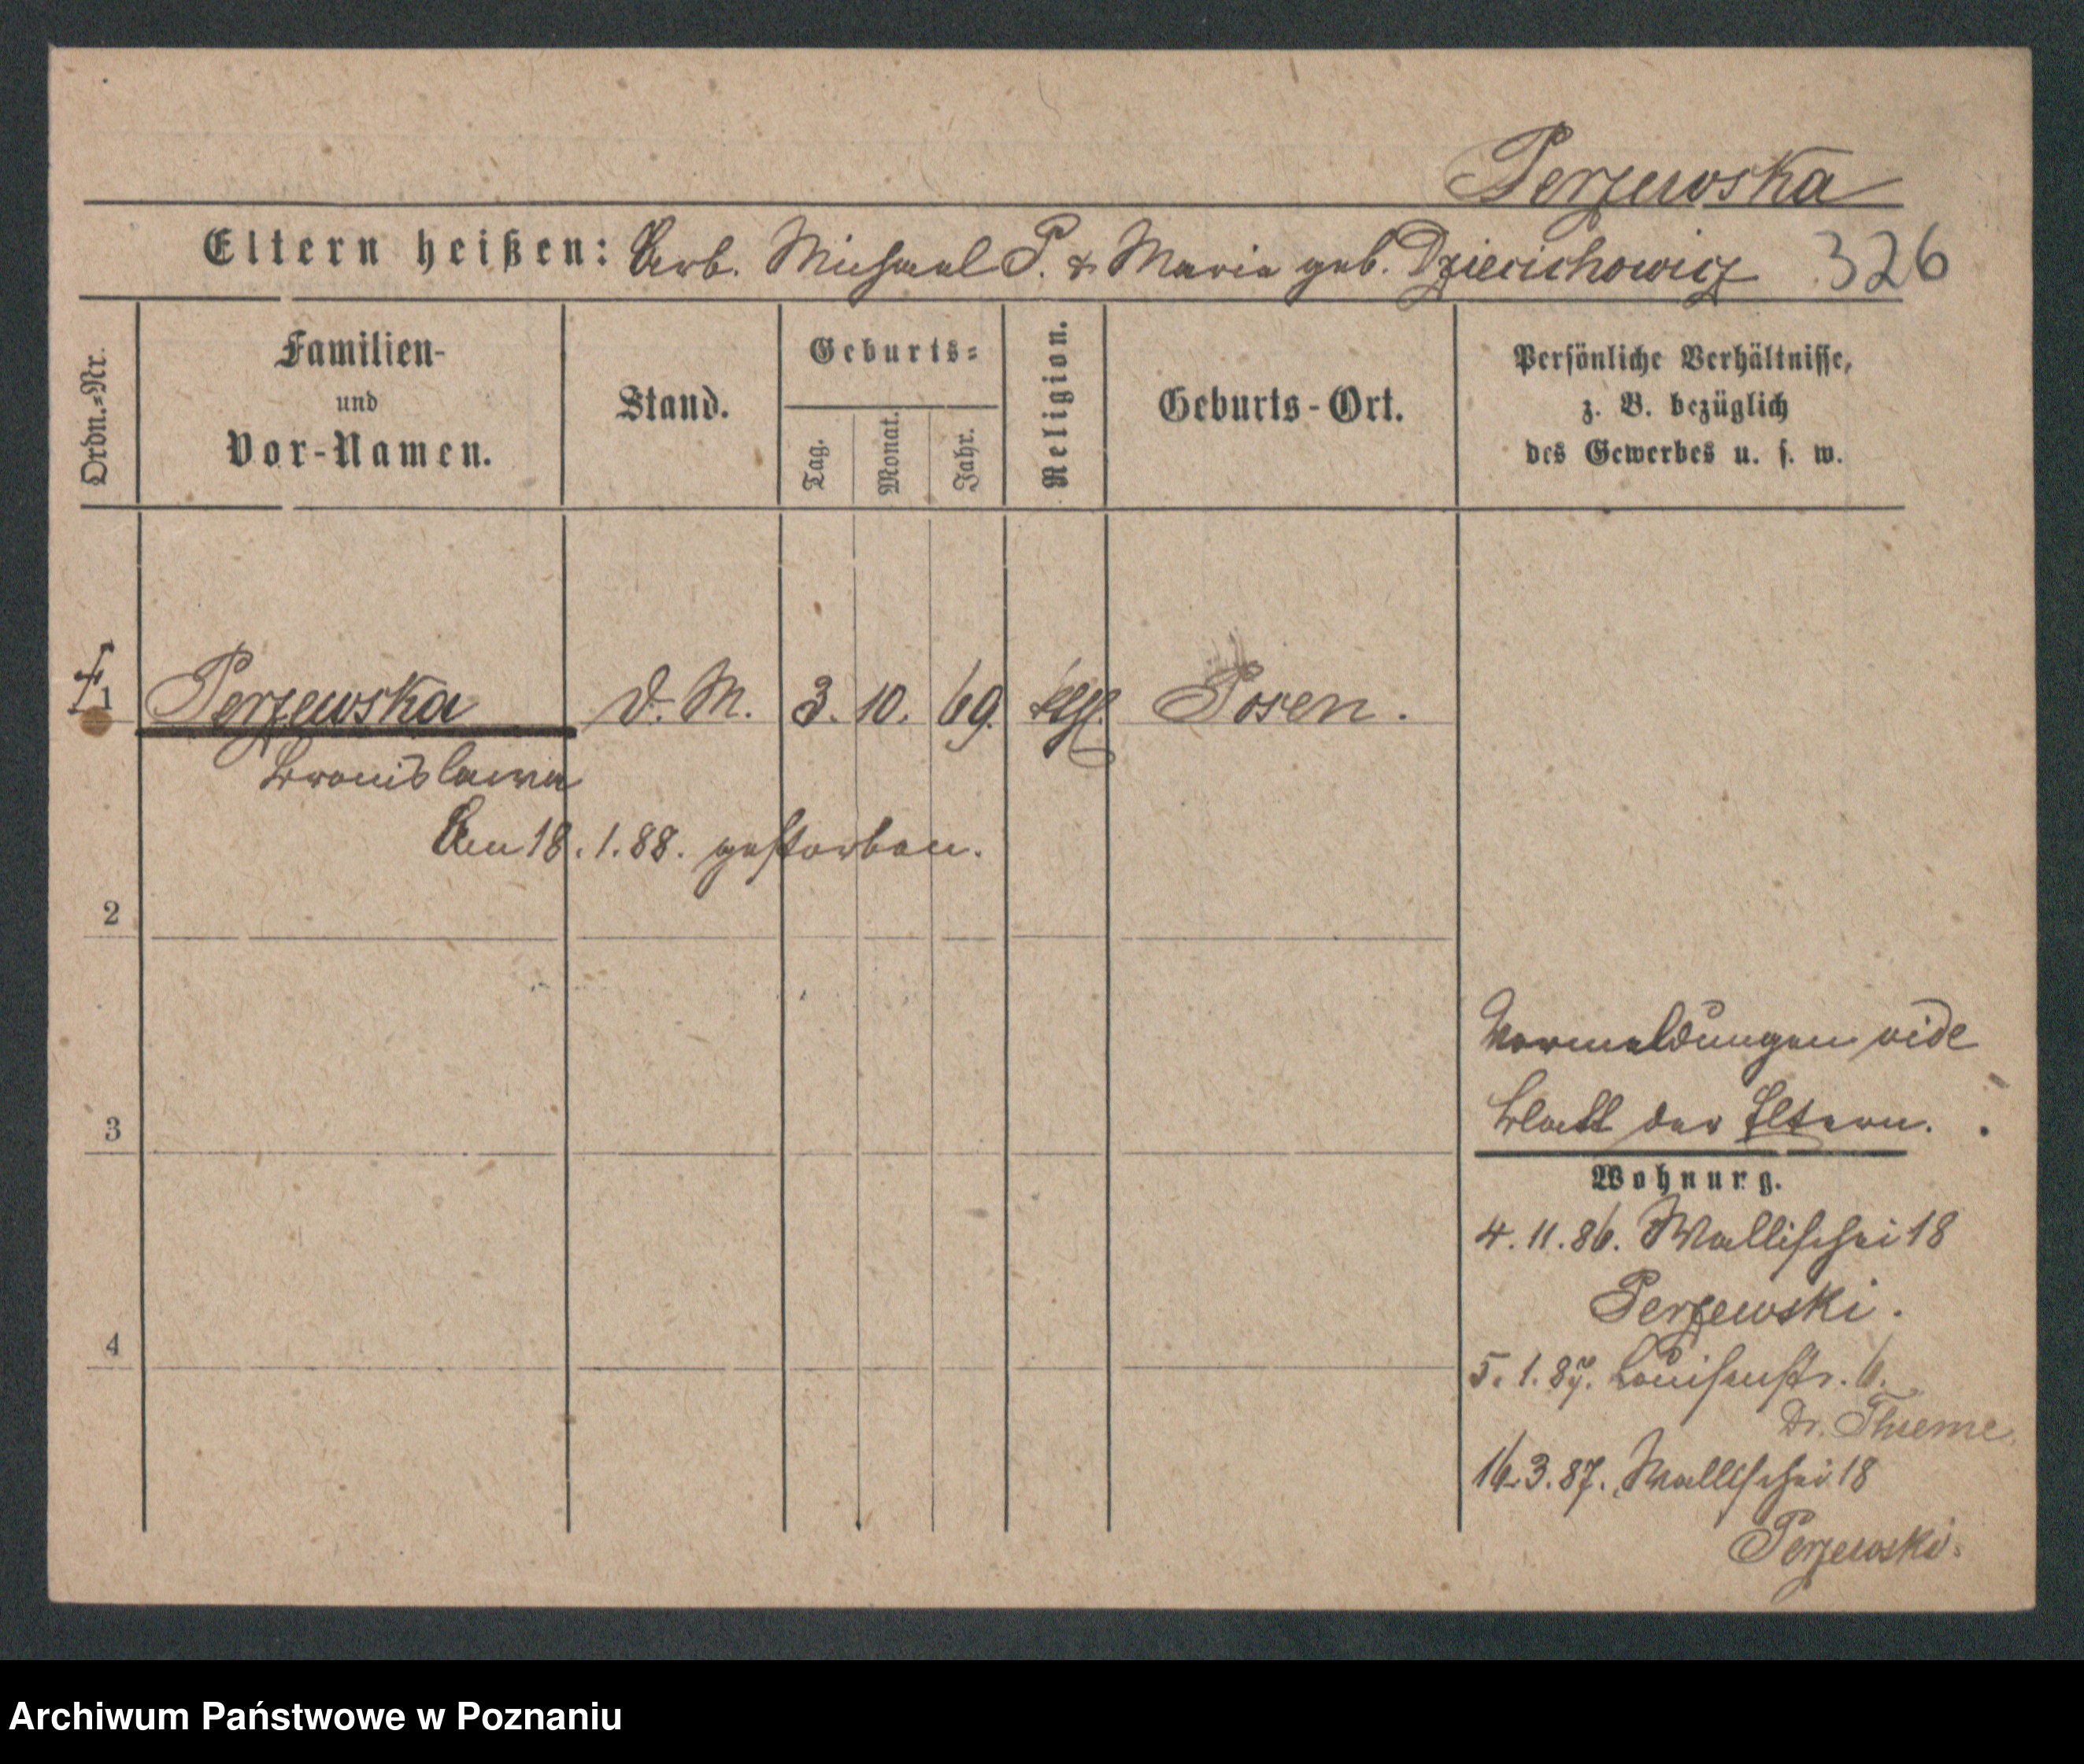 Perzewska
Eltern heißen: Arb. Michael P. & Maria geb. Dziecichowicz 326
Ordn.-Nr. Familien- und Vor-Namen. Stand. Geburts- Tag. Monat. Jahr. Religion. Geburts-Ort. Persönliche Verhältnisse, z. B. bezüglich des Gewerbes u. s. w.
1 Perzewska D. M. 3. 10. 69. Posen.
Bronislawa
Am 18.1.88. gestorben.
2
3
4
Vormeldungen vide
Blatt der Eltern.
Wohnung.
4.11.86. Wallischei 18
Perzewski.
5.1.87. Louisenstr. 6.
Dr. Thieme.
16.3.87. Wallischei 18
Perzewski.
Archiwum Państwowe w Poznaniu